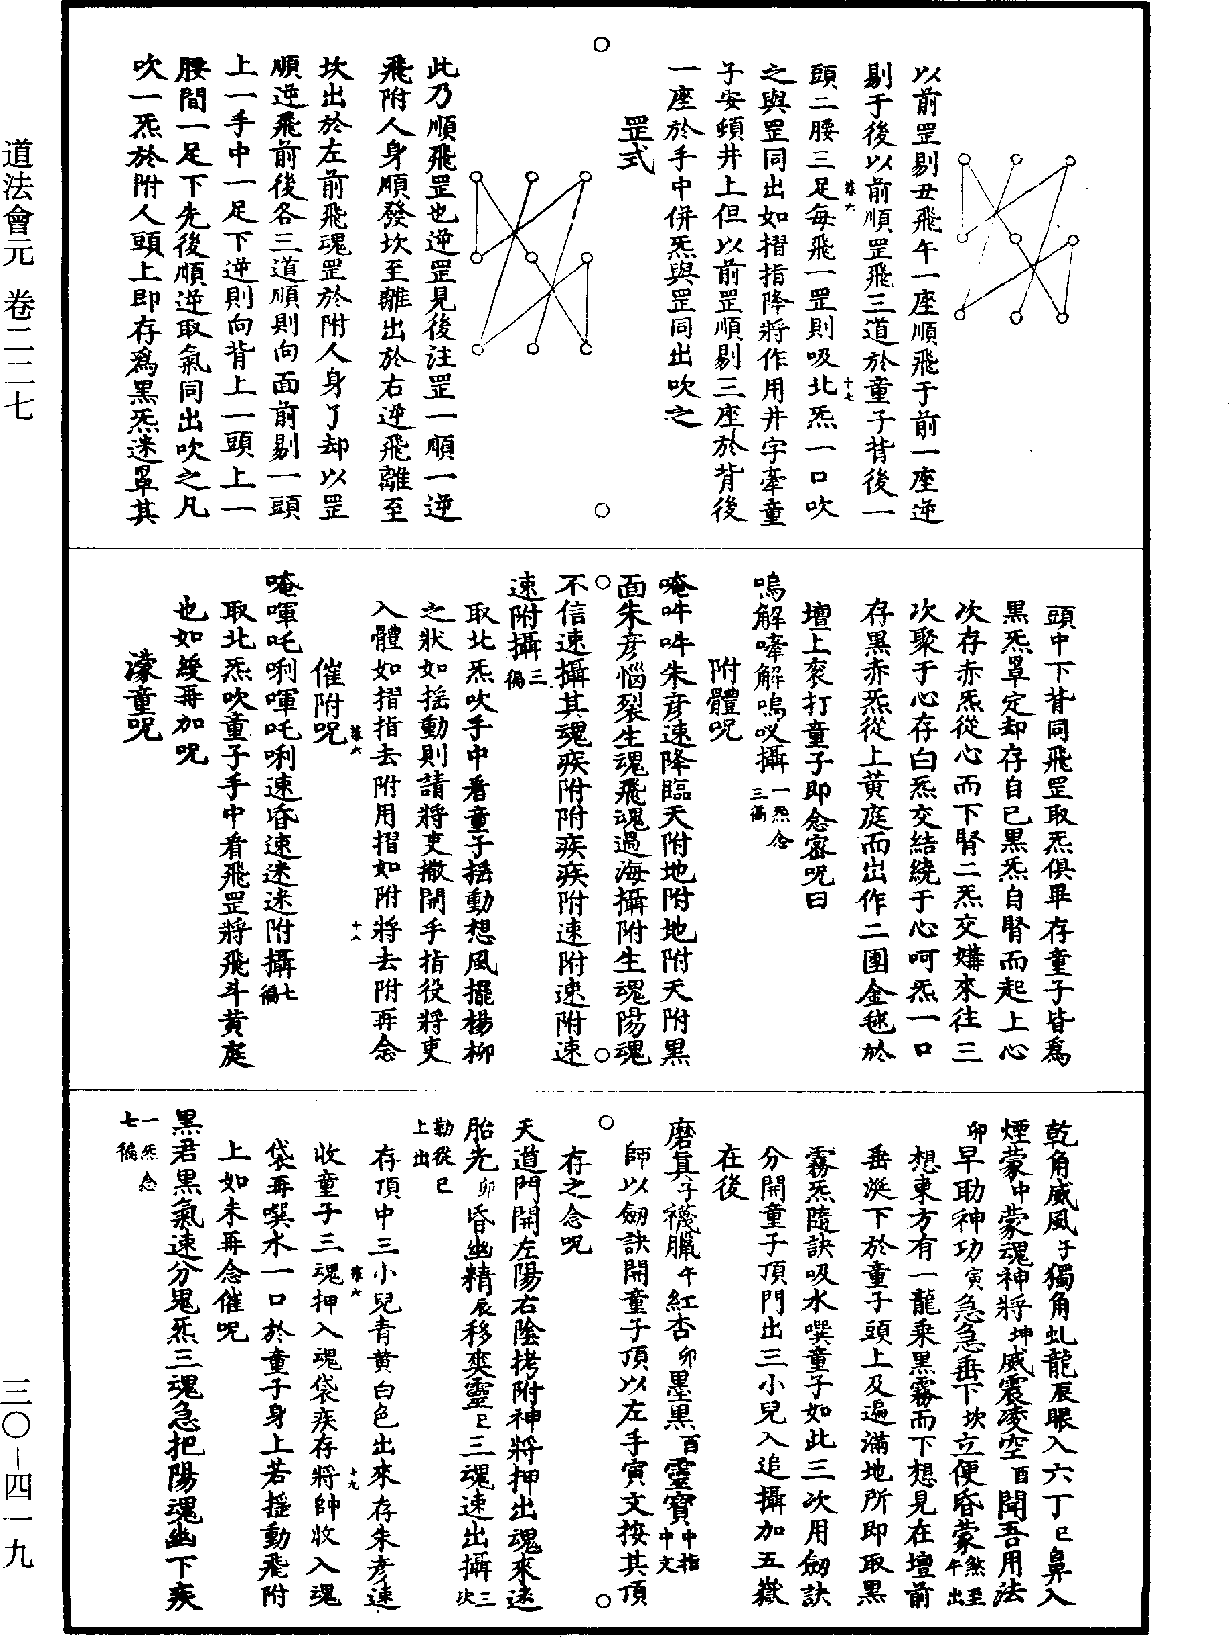 道法會元　卷二二七
以前罡剔丑飛午一座順飛于前一座逆
剔于後以前順罡飛三道於童子背後一
頭二腰三足每飛一罡則吸北炁一口吹
之與罡同出如摺指降將作用井字牽童
子安頓井上但以前罡順剔三座於背後
一座於手中併炁與罡同出吹之
罡式
此乃順飛罡也逆罡見後注罡一順一逆
飛附人身順發坎至離出於右逆飛離至
坎出於左前飛魂罡於附人身了却以罡
順逆飛前後各三道順則向面前剔一頭
上一手中一足下逆則向背上一頭上一
腰間一足下先後順逆取氣同出吹之凡
吹一炁於附人頭上即存爲黑炁迷罩其
頭中下背同飛罡取炁俱畢存童子皆爲
黑炁罩定却存自己黑炁自腎而起上心
次存赤炁從心而下腎二炁交媾來往三
次聚于心存白炁交結繞于心呵炁一口
存黑赤炁從上黄庭而出作二團金毬於
壇上衮打童子即念密呪曰
嗚解㘁解嗚㕥攝一炁念三徧
附體呪
唵吽吽朱彦速降臨天附地附地附天附黑
面朱彦惱裂生魂飛魂過海攝附生魂陽魂
不信速攝其魂疾附附疾疾附速附速附速
速附攝三徧
取北炁吹手中看童子揺動想風擺楊柳
之狀如揺動則請將吏撒開手指役將吏
入體如摺指去附用摺如附將去附再念
催附呪
唵㖇吒唎㖇吒唎速昏速迷迷附攝七徧
取北炁吹童子手中看飛罡將飛斗黄庭
也如緩再加呪
濛童呪
乾角威風子獨角虬龍辰眼入六丁巳鼻入
煙蒙中蒙魂神將坤威震凌空酉聞吾用法
卯早助神功寅急急垂下坎立便昏蒙煞至午出
想東方有一龍乘黑霧而下想見在壇前
垂涎下於童子頭上及遍滿地所即取黑
霧炁隨訣吸水噀童子如此三次用劒訣
分開童子頂門出三小兒入追攝加五嶽
在後
磨真子襪臘午紅杏卯墨黑酉靈寶中指中文
師以劒訣開童子頂以左手寅文按其頂
存之念呪
天道門開左陽右陰拷附神將押出魂來速
胎光卯昏幽精辰移爽靈巳三魂速出攝三次
勒從巳上出
存頂中三小兒青黄白色出來存朱彦速
收童子三魂押入魂袋疾存將帥收入魂
袋再噀水一口於童子身上若揺動飛附
上如未再念催呪
黑君黑氣速分鬼炁三魂急把陽魂幽下疾
一炁念七徧
三〇-四一九